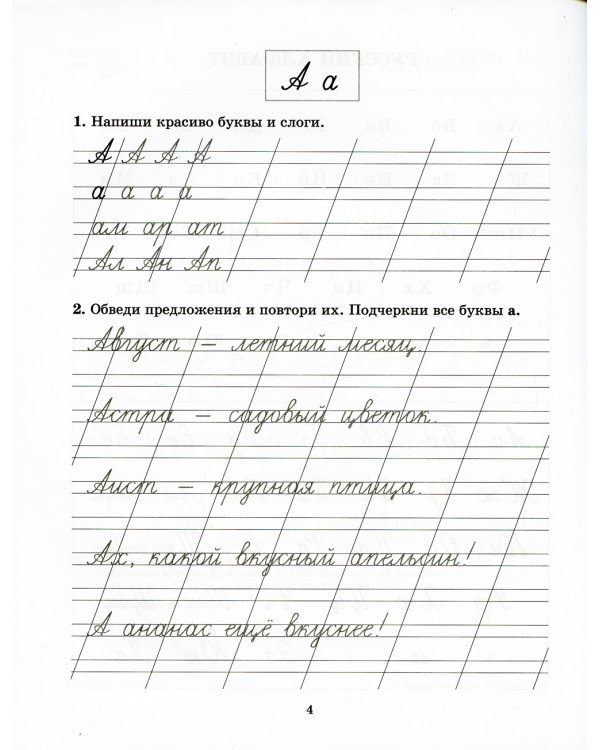 А а
1. Напиши красиво буквы и слоги.
А А А А
а а а а
ам ар ат
Ал Ан Ап
2. Обведи предложения и повтори их. Подчеркни все буквы а.
Август — летний месяц.
Астра — садовый цветок.
Аист — крупная птица.
Ах, какой вкусный апельсин!
А ананас ещё вкуснее!
4